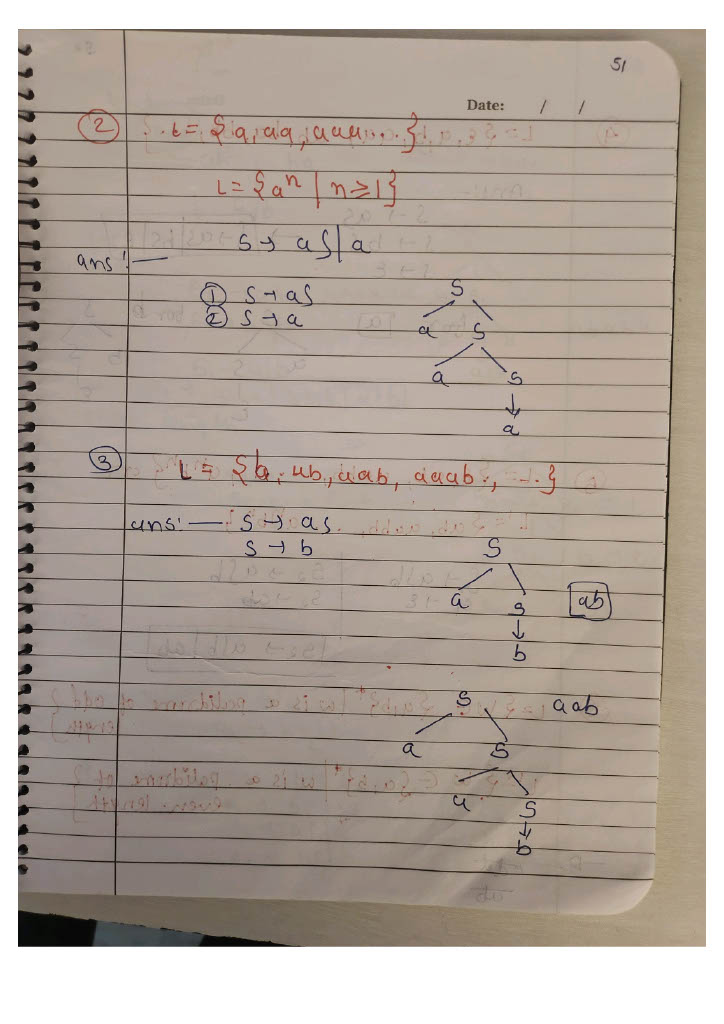 51
Date: / /
② L = {a, aa, aaa...}
L = {aⁿ | n ≥ 1}
ans:— S → aS | a
① S → aS
② S → a
S
a S
a S
a
③ L = {b, ab, aab, aaab, ...}
ans:— S → aS
S → b
S
a S ab
b
S aab
a S
a S
b